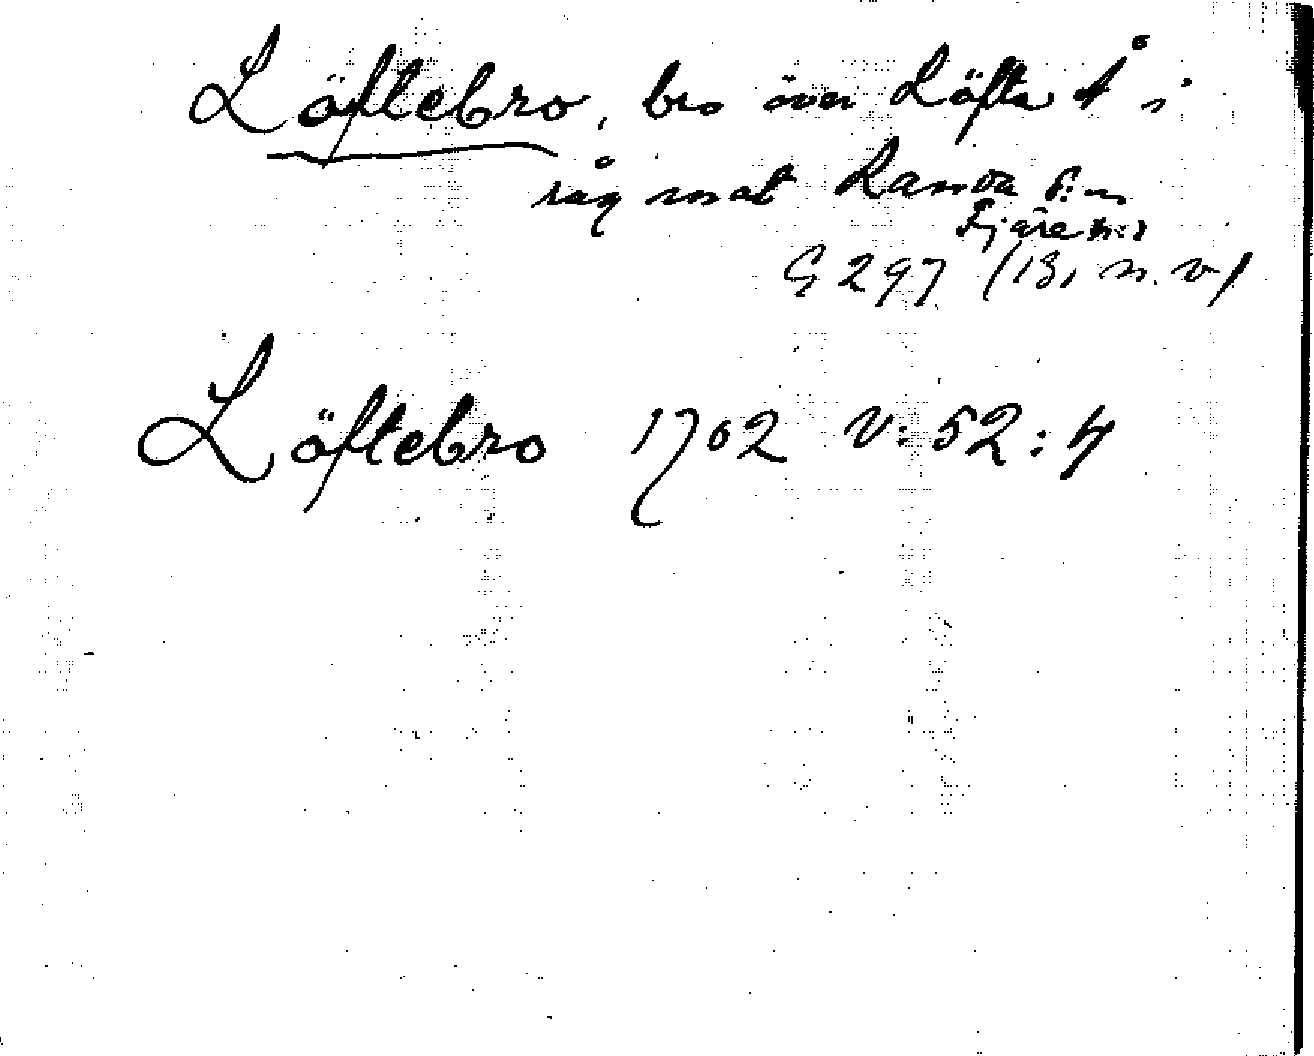 Löftebro, bro över Löfta Å i
råg mot Landa s:n
Fjäre h:d
G 297 (13, n. v)
Löftebro 1702 V: 52: 4